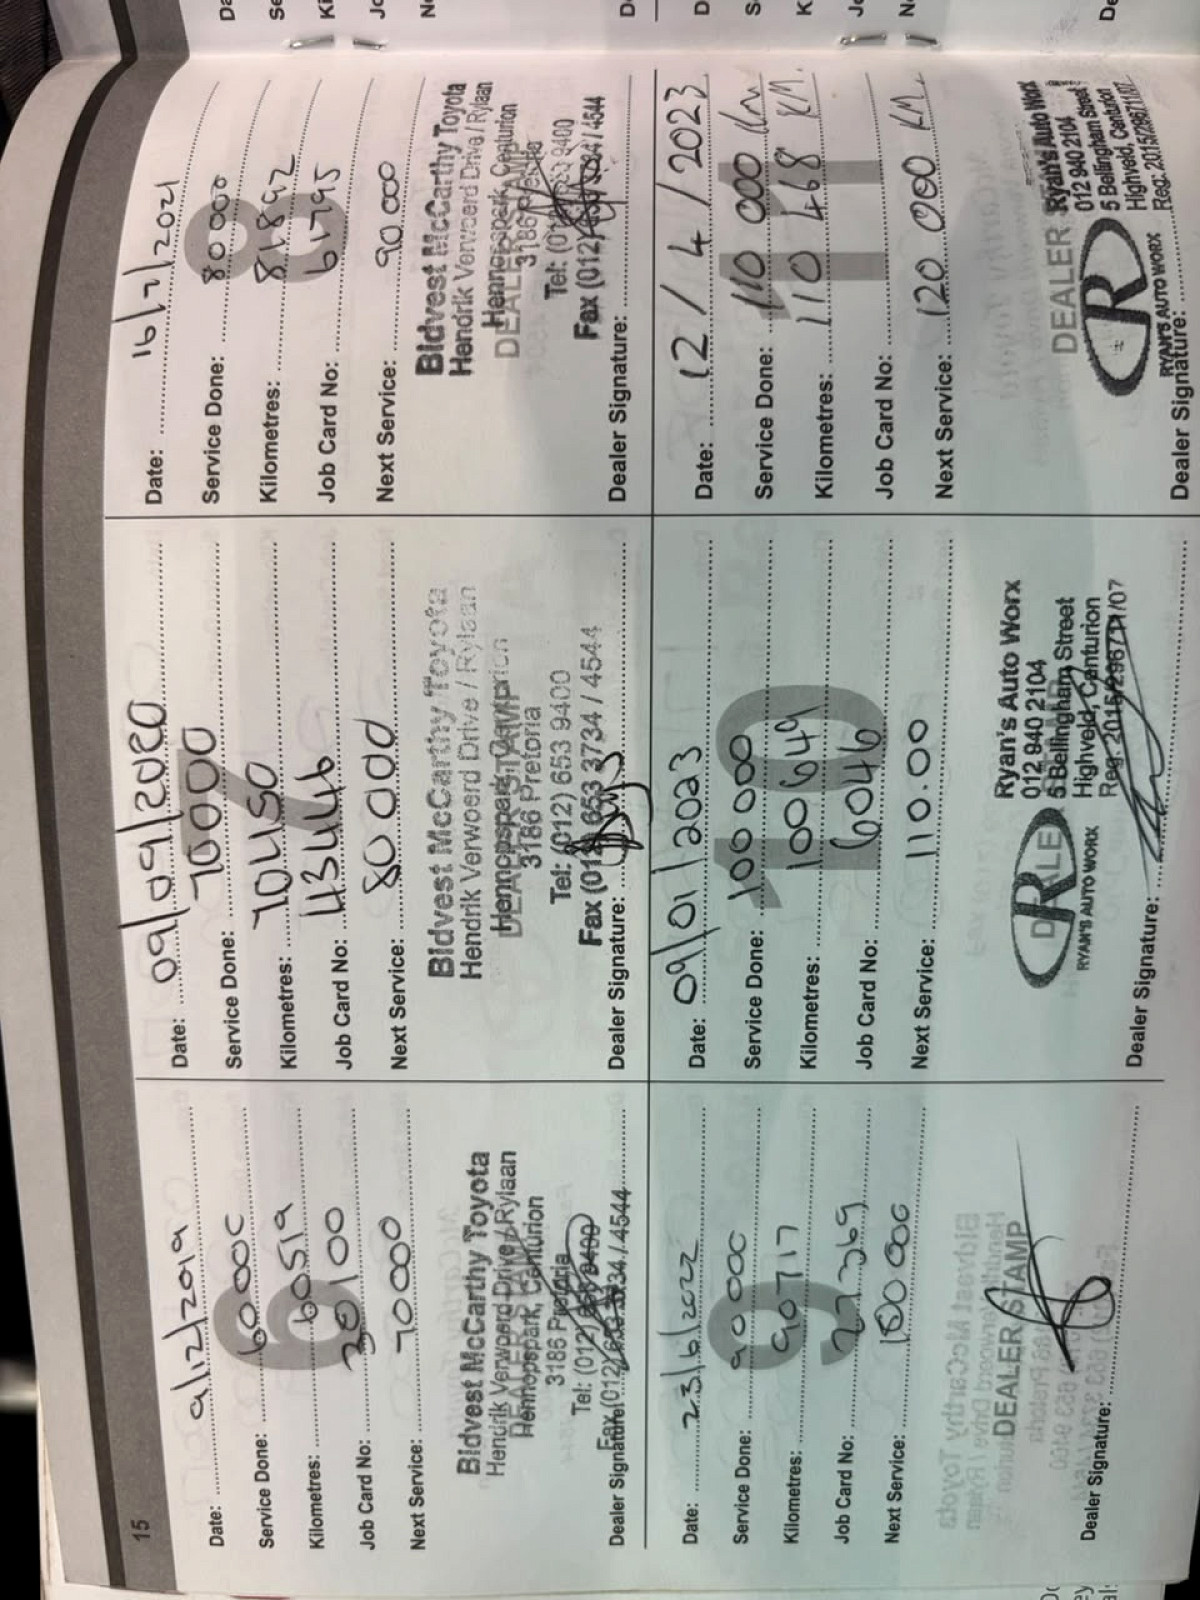 15
6
Date: 9/12/2019
Service Done: 60 000
Kilometres: 60519
Job Card No: 30100
Next Service: 70000
Bidvest McCarthy Toyota
Hendrik Verwoerd Drive / Rylaan
Hennopspark, Centurion
3186 Pretoria
Tel: (012) 653 9400
Fax (012) 653 3734 / 4544
Dealer Signature:
7
Date: 09/09/2020
Service Done: 70000
Kilometres: 70450
Job Card No: 43446
Next Service: 80000
Bidvest McCarthy Toyota
Hendrik Verwoerd Drive / Rylaan
Hennopspark, Centurion
DEALER STAMP
3186 Pretoria
Tel: (012) 653 9400
Fax (012) 653 3734 / 4544
Dealer Signature:
8
Date: 16/2/2021
Service Done: 80 000
Kilometres: 81892
Job Card No: 61795
Next Service: 90 000
Bidvest McCarthy Toyota
Hendrik Verwoerd Drive / Rylaan
Hennopspark, Centurion
DEALER STAMP
3186 Pretoria
Tel: (012) 653 9400
Fax (012) 653 3734 / 4544
Dealer Signature:
9
Date: 23/6/2022
Service Done: 90 000
Kilometres: 90717
Job Card No: 27369
Next Service: 100 000
DEALER STAMP
Dealer Signature:
10
Date: 09/01/2023
Service Done: 100 000
Kilometres: 100649
Job Card No: 6046
Next Service: 110.00
R
RYAN'S AUTO WORX
Ryan's Auto Worx
012 940 2104
5 Bellingham Street
Highveld, Centurion
Reg: 2015/298711/07
Dealer Signature:
11
Date: 12/4/2023
Service Done: 110 000 km
Kilometres: 110 468 KM.
Job Card No:
Next Service: 120 000 KM.
DEALER
R
RYAN'S AUTO WORX
Ryan's Auto Worx
012 940 2104
5 Bellingham Street
Highveld, Centurion
Reg: 2015/298711/07
Dealer Signature: